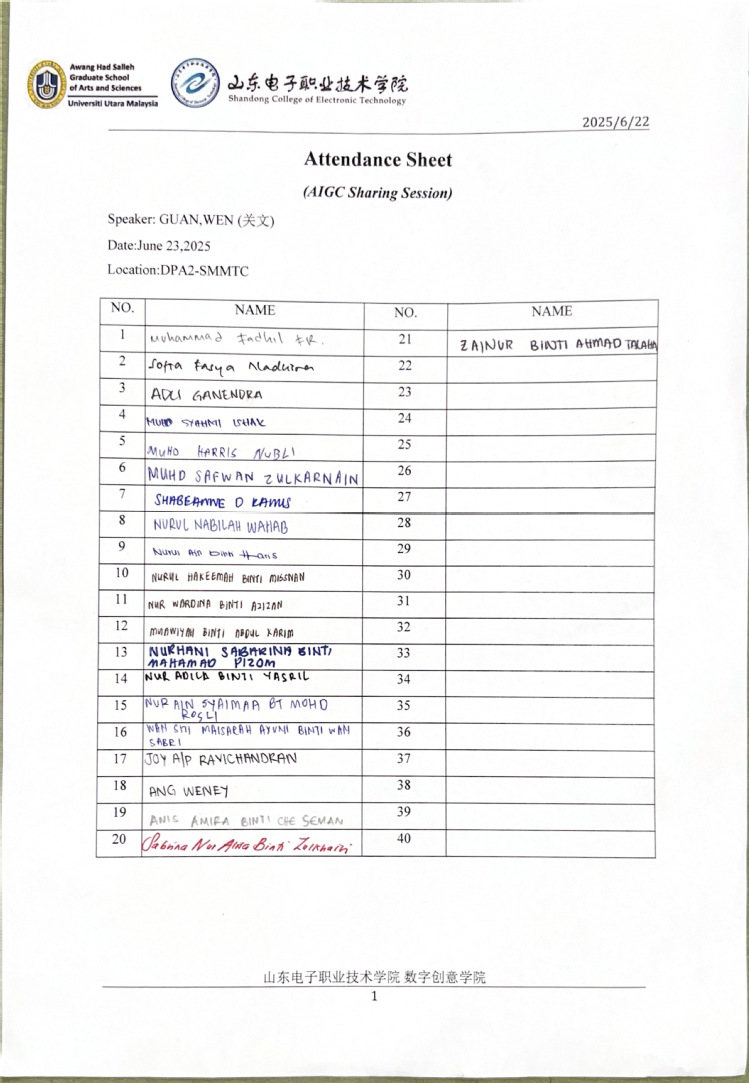 Awang Had Salleh
Graduate School
of Arts and Sciences
Universiti Utara Malaysia
山东电子职业技术学院
Shandong College of Electronic Technology
2025/6/22
Attendance Sheet
(AIGC Sharing Session)
Speaker: GUAN,WEN (关文)
Date:June 23,2025
Location:DPA2-SMMTC
NO. NAME NO. NAME
1 Muhammad Fadhil 21 ZAINUR BINTI AHMAD TALAHA
2 Sofia 22
3 ADLI GANENDRA 23
4 MUHD SYAHMI ISHAK 24
5 MUHD HARRIS NUBLI 25
6 MUHD SAFWAN ZULKARNAIN 26
7 SHABEANNE D 27
8 NURUL NABILAH WAHAB 28
9 Nurul Ain binti Haris 29
10 NURUL HAKEEMAH BINTI MISSNAN 30
11 NUR WARDINA BINTI AZIZAN 31
12 BINTI ABDUL KARIM 32
13 NURHANI SABARINA BINTI 33
MAHAMAD PIZOM
14 NUR ADILA BINTI YASRIL 34
15 NUR AIN SYAIMAA BT MOHD 35
ROSLI
16 WAN SITI MAISARAH AYUNI BINTI WAN 36
SABRI
17 JOY A/P RAVICHANDRAN 37
18 ANG WENEY 38
19 ANIS AMIRA BINTI CHE SEMAN 39
20 Sabrina Nur Binti 40
山东电子职业技术学院 数字创意学院
1